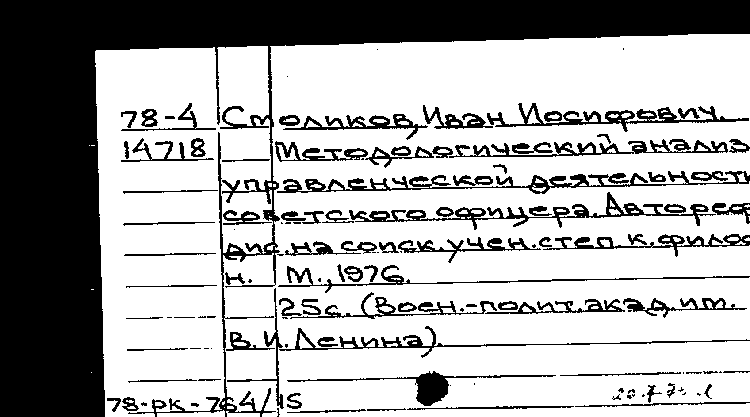 78-4 Столиков, Иван Иосифович.
14718 Методологический анализ
управленческой деятельности
советского офицера. Автореф
дис. на соиск. учен. степ. к. филос
н. М., 1976.
25с. (Воен.-полит. акад. им.
В. И. Ленина).
78-рк-764/15